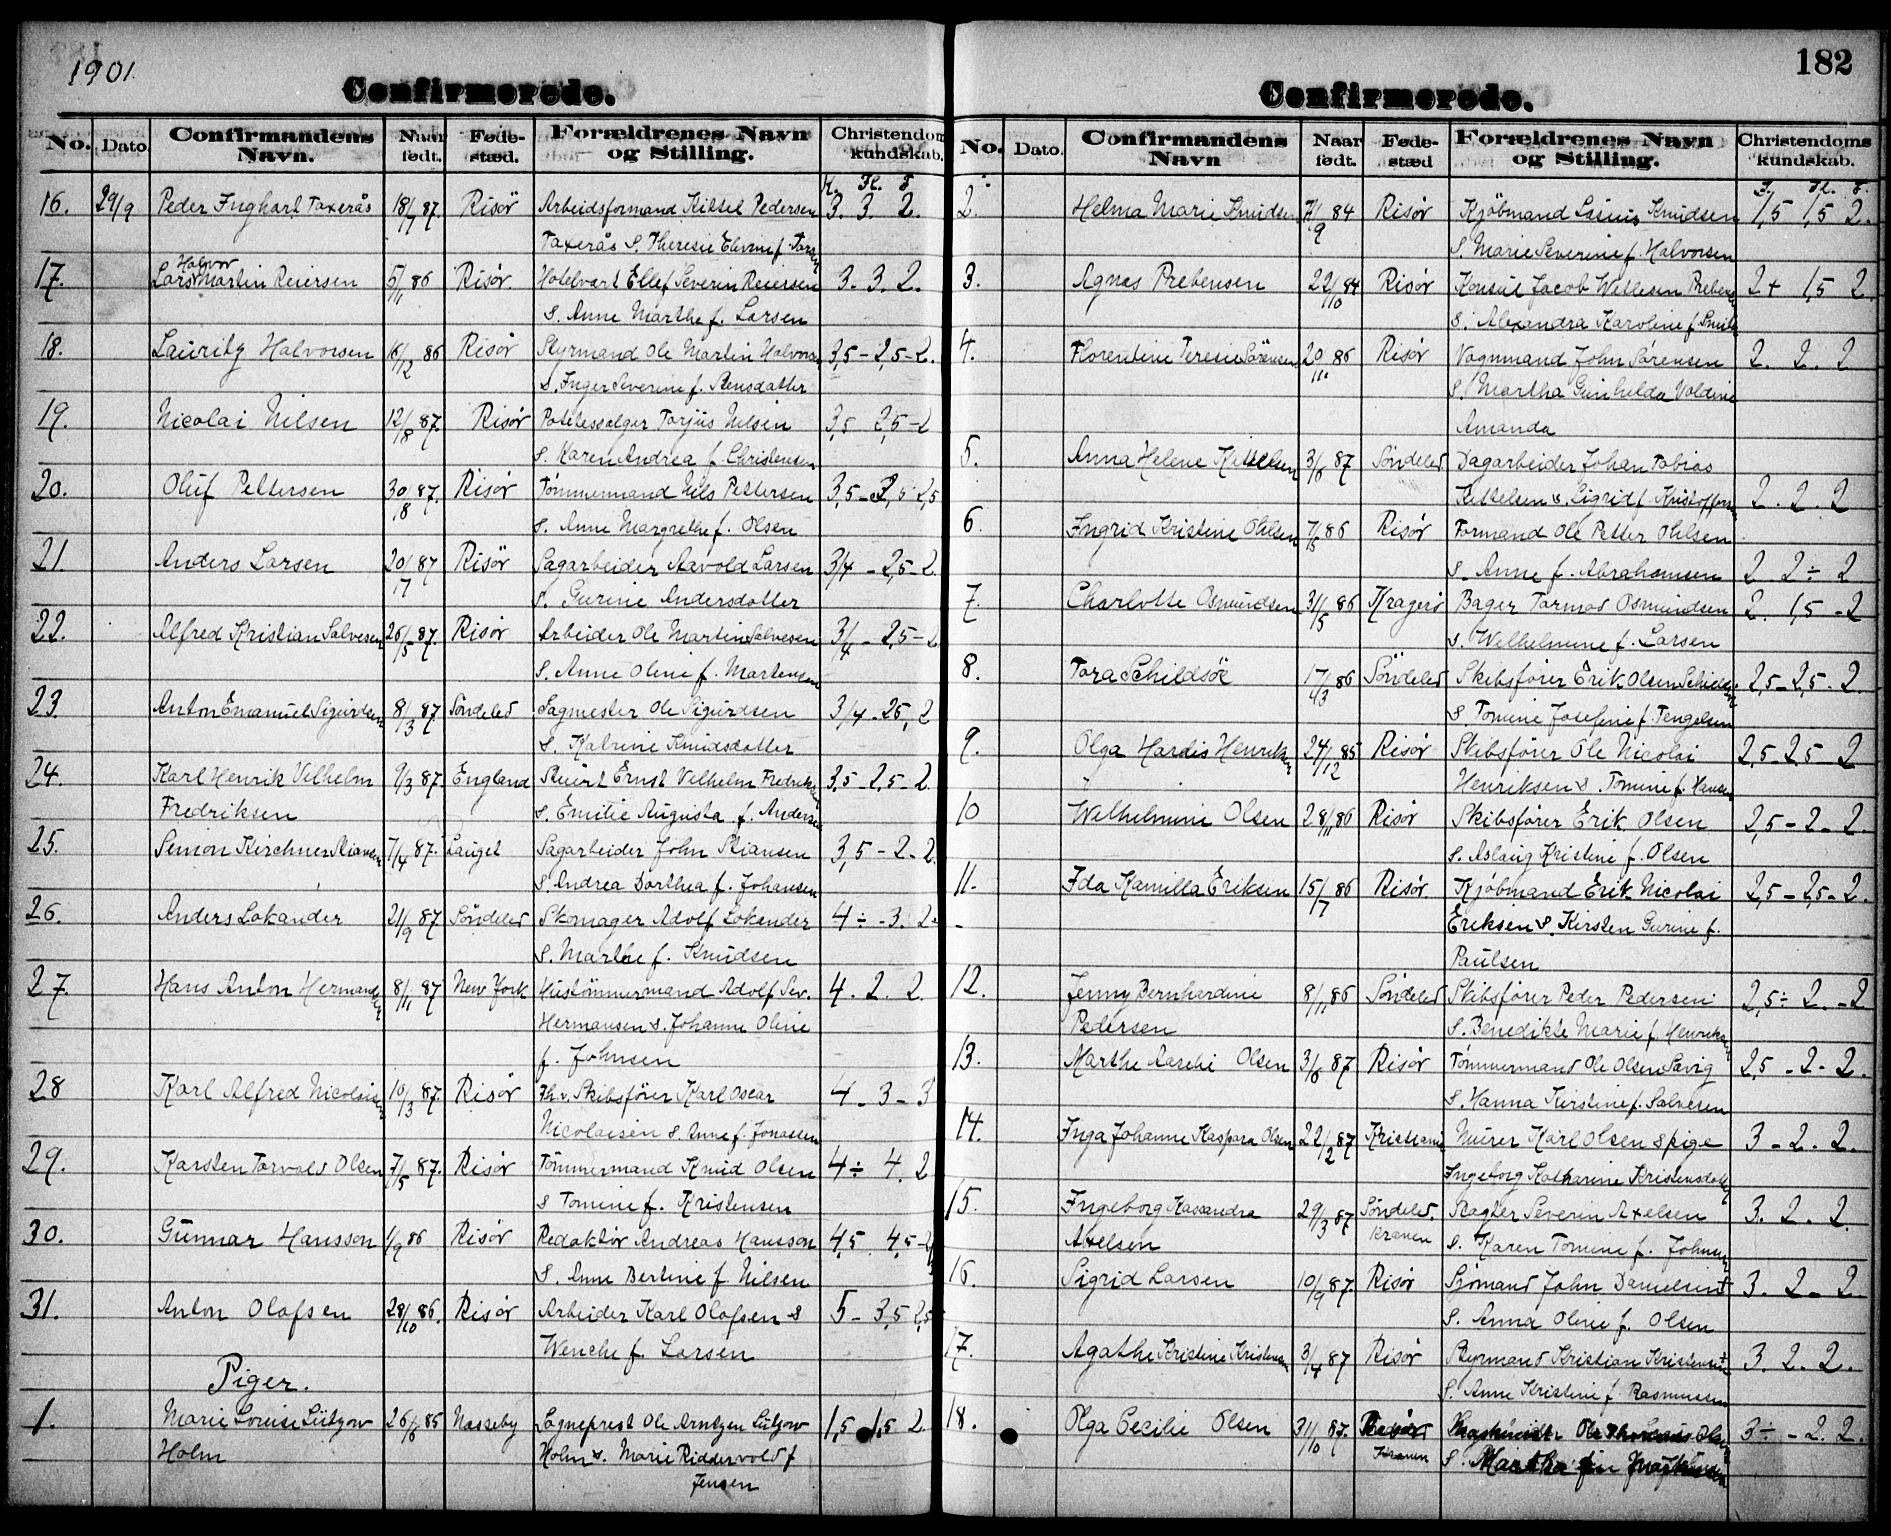 1901.
Confirmerede.
No. Dato. Confirmandens Navn. Naar født. Føde-stæd. Forældrenes Navn og Stilling. Christendoms kundskab.
K. Fl. F
16. 29/9 Peder Inghart Taxerås 18/7 87. Risör Arbeidsformand Kittel Pedersen 3. 3. 2.
Taxerås & Theresie f.
Halvor
17. Lars Martin Reiersen 5/11 86 Risør. Hotelvært Ellef Severin Reiersen 3. 3. 2.
& Anne Marthe f. Larsen
18. Lauritz Halvorsen 16/12 86 Risör Styrmand Ole Martin Halvorsen 3,5 - 2,5 - 2.
& Inger Severine f. Jensdatter
19. Nicolai Nilsen 12/8 87. Risør Torjus Nilsen 3,5 2,5 - 2
& Karen Andrea f. Christensen
20. Oluf Pettersen 30/8 87. Risör Tømmermand Nils Pettersen 3,5 - 2,5 2,5
& Anne Margrethe f. Olsen
21. Anders Larsen 20/7 87 Risør Sagarbeider Aavold Larsen 3/4 - 2,5 - 2.
& Gurine Andersdatter
22. Alfred Kristian Salvesen 26/5 87. Risör Arbeider Ole Martin Salvesen 3/4 - 2,5 - 2
& Anne Oline f. Martensen
23. Anton Emanuel Sigurdsen 8/3 87 Söndeled Sagmester Ole Sigurdsen 3/4 - 2,5, 2
& Katrine Knudsdatter
24. Karl Henrik Vilhelm 9/3 87. England Stuert Ernst Vilhelm Fredriksen 3,5 - 2,5 - 2.
Fredriksen & Emilie Augusta f. Andersen
25. Simon Kirchner Stiansen 7/4 87. Lauget Sagarbeider John Stiansen 3,5 - 2 - 2.
& Andrea Dorthea f. Johansen
26. Anders Lokander 21/9 87. Söndeled Skomager Adolf Lokander 4 ÷ - 3. 2.
& Marthe f. Knudsen
27. Hans Anton Hermansen 8/11 87 New York Hustömmermand Adolf Sev. 4. 2. 2.
Hermansen & Johanne Oline
f. Johnsen
28 Karl Alfred Nicolaisen 10/3 87. Risør Fh.v. Skibsfører Karl Oscar 4 - 3 - 3
Nicolaisen & Anne f. Jonassen
29. Karsten Torvald Olsen 7/5 87. Risør Tømmermand Knud Olsen 4 ÷ 4. 2
& Tomine f. Kristensen
30. Gunnar Hansson 1/9 86 Risör Redaktør Andreas Hansson 4,5 4,5 -
& Anne Bertine f. Nilsen
31. Anton Olofsen 28/10 86. Risør Arbeider Karl Olofsen & 5 - 3,5 2,5
Wenche f. Larsen
Piger.
1. Marie Louise Lützow 26/6 85 Nasseby Sogneprest Ole Arntzen Lützow 1,5 1,5 2.
Holm Holm & Marie Riddervold f
Jensen
182
Confirmerede.
No. Dato. Confirmandens Navn Naar født. Føde-stæd Forældrenes Navn og Stilling. Christendoms kundskab.
Fl. F.
2. Helma Marie Knudsen 7/9 84 Risør Kjöbmand Knudsen 1,5 1,5 2.
& Marie Severine f. Halvorsen
3. Agnes Prebensen 22/10 84 Risør Konsul Jacob Wetlesen Prebensen 2+ 1,5 2.
& Alexandra Karoline f.
4. Florentine Teresie Sørensen 20/11. 86 Risør Vognmand John Sørensen 2. 2. 2
& Martha Gunhilda Voldine
Amanda
5. Anna Helene Kittelsen 3/6 87 Söndeled Dagarbeider Johan Tobias
Kittelsen & Sigrid f. Kristoffersen 2. 2. 2
6. Ingrid Kristine Ohlsen 7/5 86 Risør Formand Ole Petter Ohlsen
& Anne f. Abrahamsen 2 2 ÷ 2
7. Charlotte Osmundsen 31/5 86 Kragerö Bager Tarmod Osmundsen 2. 1,5 - 2
& Wilhelmine f. Larsen
8. Tora Schildsöe 17/3 86 Söndeled Skibsfører Erik Olsen 2,5 - 2,5 - 2.
& Tomine Josefine f. Tengelsen
9. Olga Hardis Henriksen 24/12 85 Risør Skibsfører Ole Nicolai 2,5 - 2,5 - 2
Henriksen & Tomine f. Hansen
10 Wilhelmine Olsen 28/11 86 Risør Skibsfører Erik Olsen 2,5 - 2 - 2.
& Aslaug Kristine f. Olsen
11. Ida Kamilla Eriksen 15/7 86 Risør. Kjöbmand Erik Nicolai 2,5 - 2,5 - 2.
Eriksen & Kirsten Gurine f.
Paulsen
12. Jenny Bernhardine 8/11 86 Söndeled Skibsfører Peder Pedersen 2,5 ÷ 2. - 2
Pedersen & Benedikte Marie f. Henriksen
13. Marthe Aaselie Olsen 3/6 87 Risør Tømmermand Ole Olsen 2,5 - 2 - 2.
& Hanna Kirstine f. Salvesen
14. Inga Johanne Kaspara Olsen 22/2 87 Kristiania Murer Karl Olsen & pige 3 - 2. 2.
Ingeborg Katharine Kristensdatter
15. Ingeborg Kassandra 29/3 87 Söndeled. Severin Axelsen 3. 2. 2.
Axelsen Kranen & Karen Tomine f. Johnsen
16. Sigrid Larsen 10/9 87. Risør Sjømand John Danielsen 3. 2 - 2.
& Anna Oline f. Olsen
17. Agathe Kristine Kristensen 3/4 87 Risör Styrmand Kristian Kristensen 3. 2. 2.
& Anne Kristine f. Rasmussen
18. Olga Cecilie Olsen 31/10 87. Ole 3 ÷ - 2. 2.
Kranen & Martha